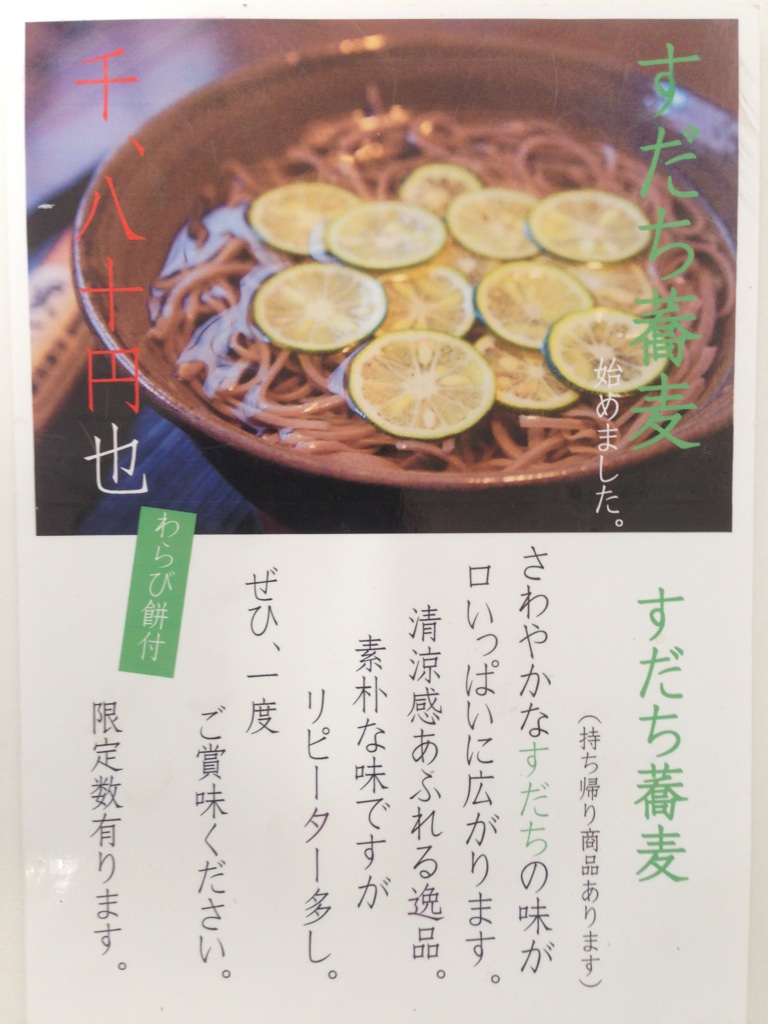 すだち蕎麦
始めました。
千、八十円也
すだち蕎麦
（持ち帰り商品あります）
さわやかなすだちの味が
口いっぱいに広がります。
清涼感あふれる逸品。
素朴な味ですが
リピーター多し。
ぜひ、一度
ご賞味ください。
わらび餅付
限定数有ります。